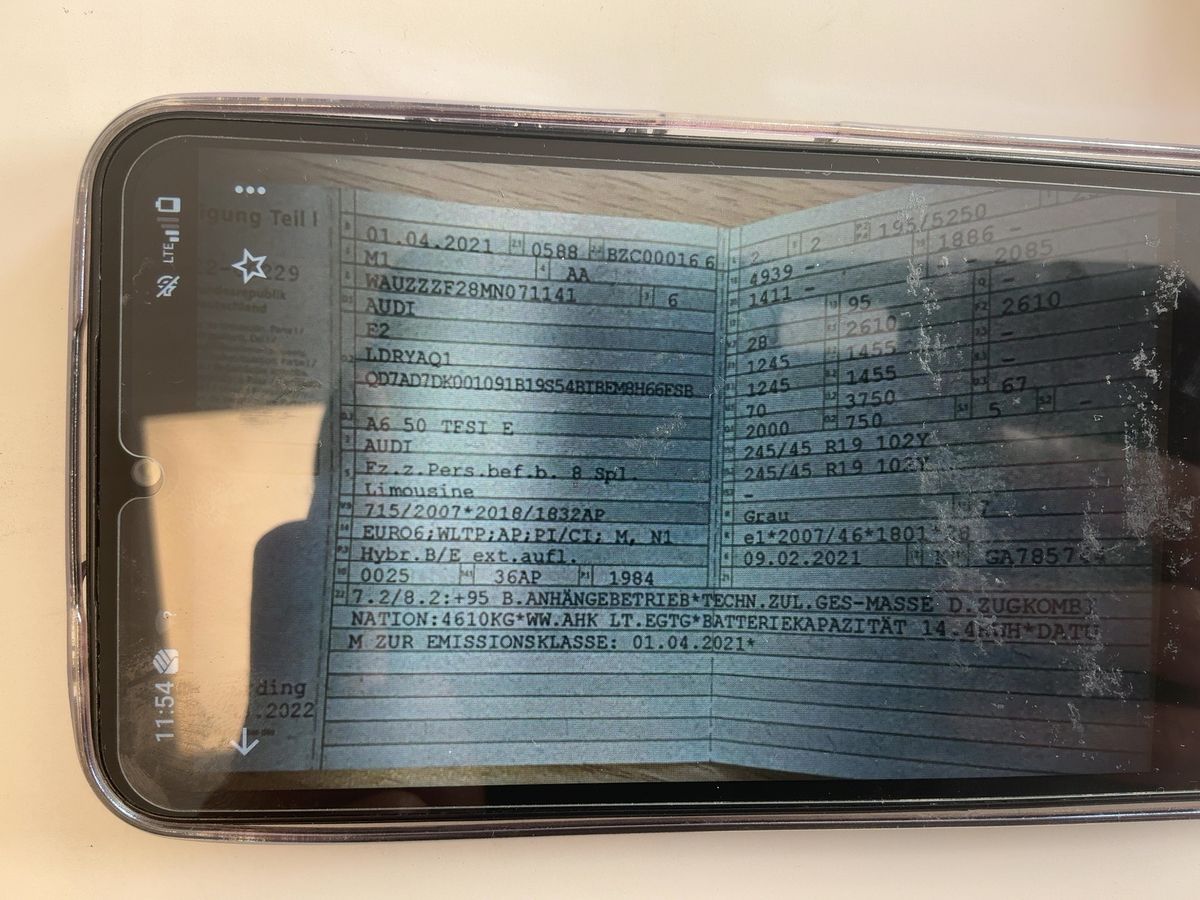 11:54
LTE
igung Teil I
229
republik
ding
.2022
01.04.2021 2.1 0588 2.2 BZC00016 6
M1 AA
WAUZZZF28MN071141 3 6
AUDI
F2
LDRYAQ1
QD7AD7DK001091B19S54BIBEM8H66FSB
A6 50 TFSI E
AUDI
Fz.z.Pers.bef.b. 8 Spl.
Limousine
715/2007*2018/1832AP
EURO6;WLTP;AP;PI/CI; M, N1
Hybr.B/E ext.aufl.
0025 14.1 36AP P.1 1984
2 2 195/5250
4939 - 1886 -
1411 - - 2085
28 95
1245 2610 2610
1245 1455 -
70 1455 -
2000 3750 67
750 5 -
245/45 R19 102Y
245/45 R19 102Y
-
Grau 7
e1*2007/46*1801*
09.02.2021 K GA7857
22 7.2/8.2:+95 B.ANHÄNGEBETRIEB*TECHN.ZUL.GES-MASSE D.ZUGKOMBI
NATION:4610KG*WW.AHK LT.EGTG*BATTERIEKAPAZITÄT 14.4 *DATU
M ZUR EMISSIONSKLASSE: 01.04.2021*